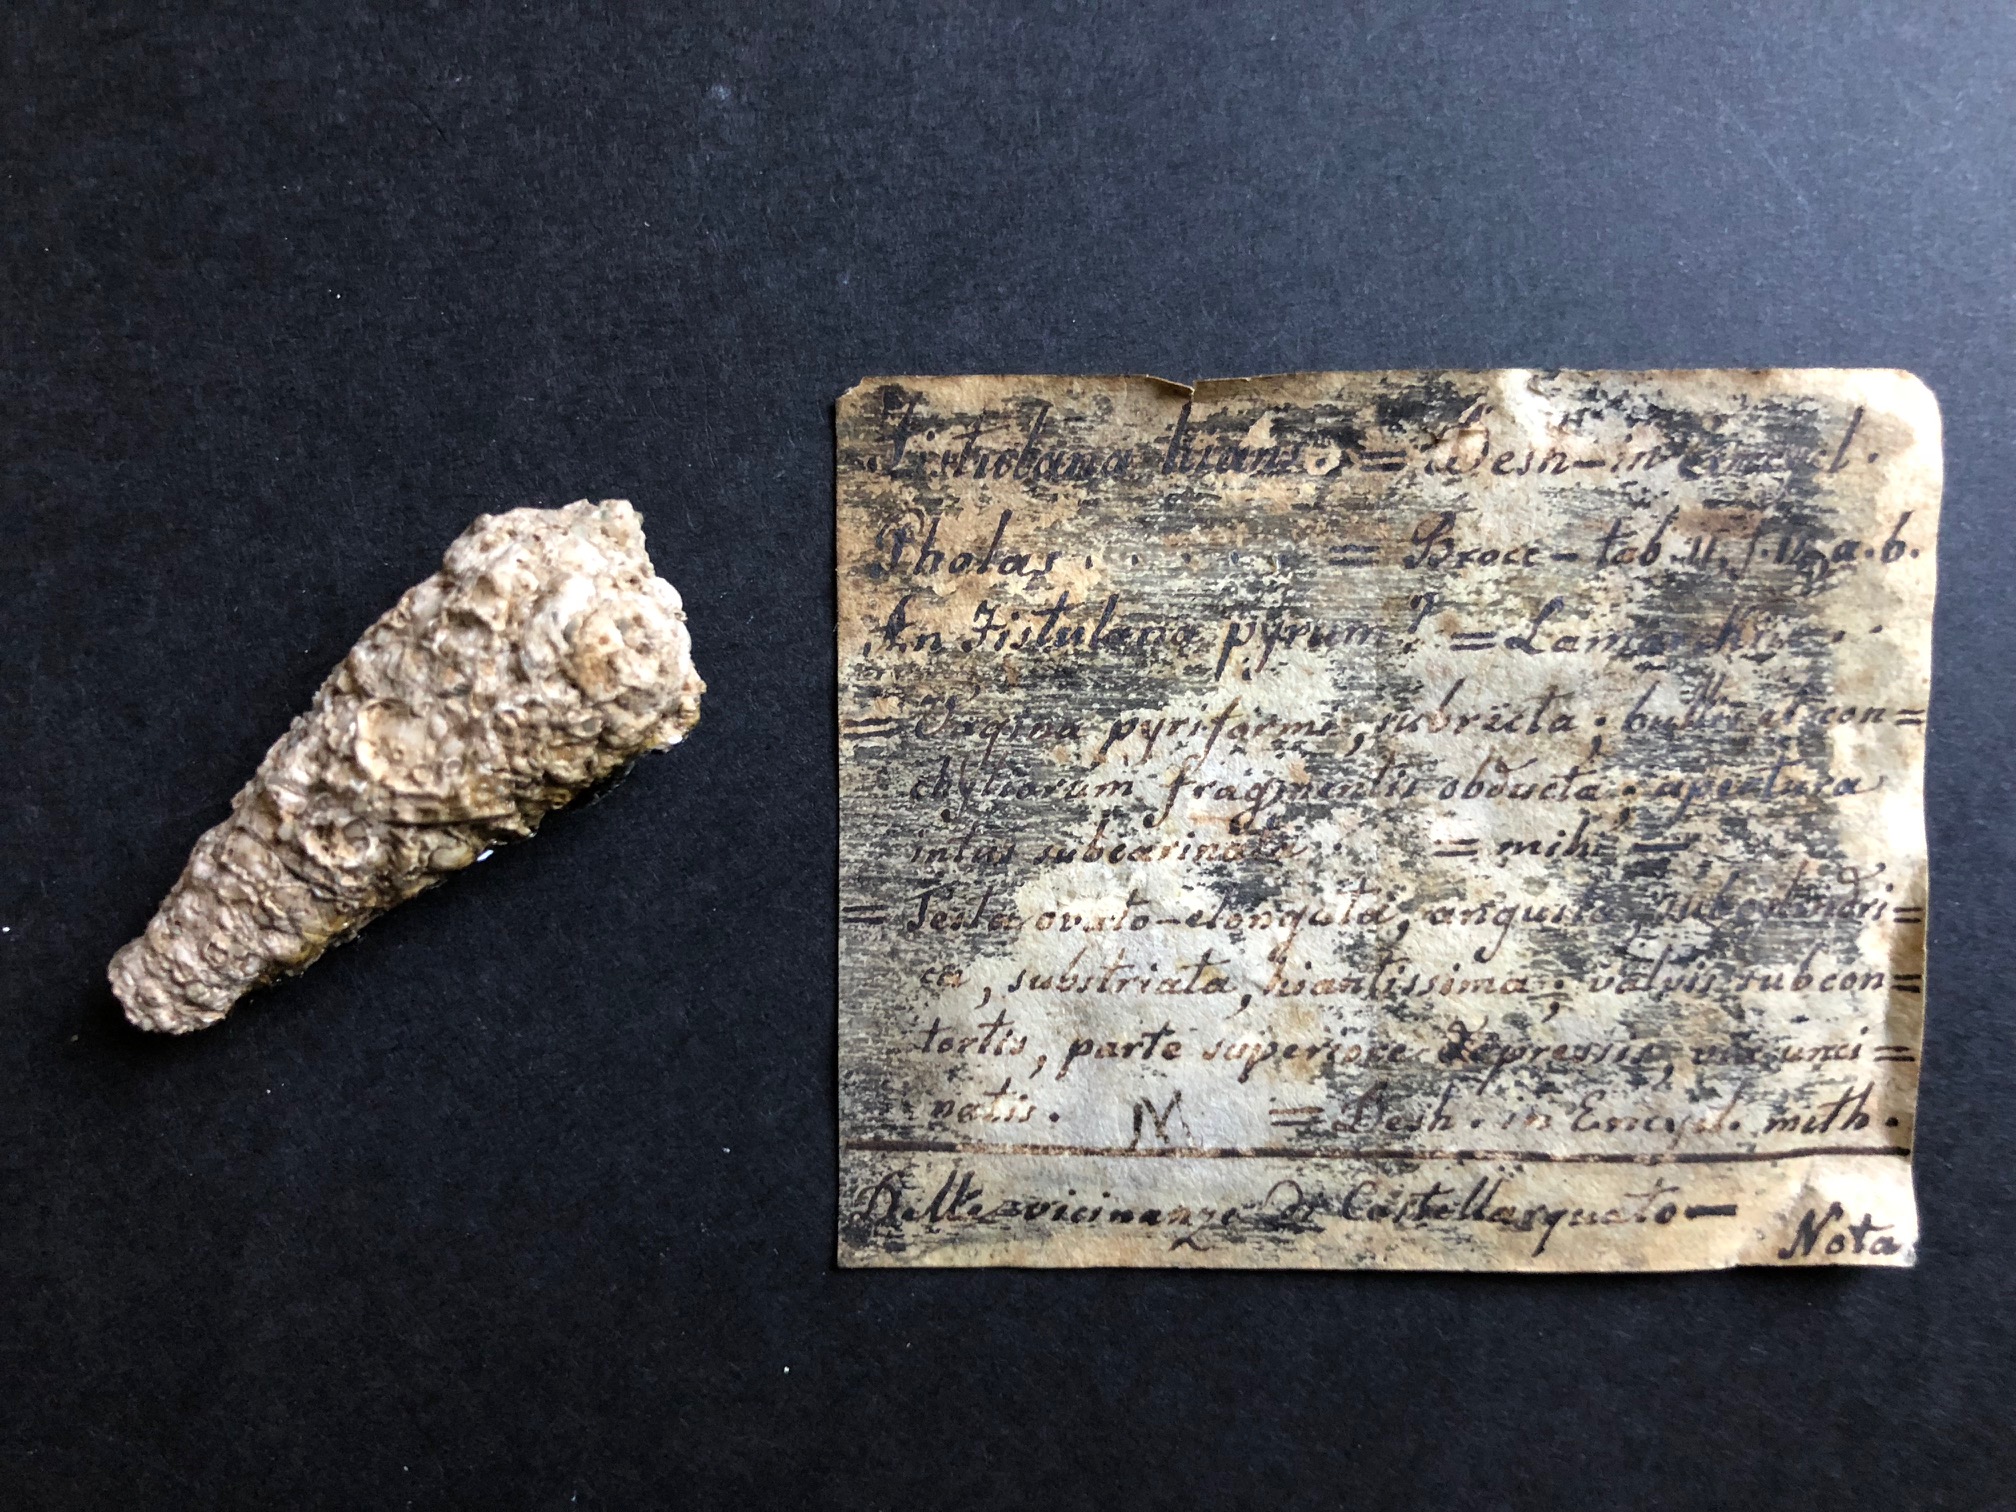 Fistrobana hians. = Desh - in Encycl.
Pholas . . . . . = Brocc - tab. 11. f. 12. a. b.
An Fistulana pyrum? = Lamarck . .
= Vagina pyriformi, subrecta; bullis et con=
chyliorum fragmentis obducta; apertura
intus subcarinata. = mihi =
= Testa ovato-elongata, angusta, subcilindri=
ca, substriata, hiantissima; valvis subcon=
tortis, parte superiore depressis, vix unci=
natis. M = Desh. in Encycl. meth.
Delle vicinanze di Castellarquato —
Nota